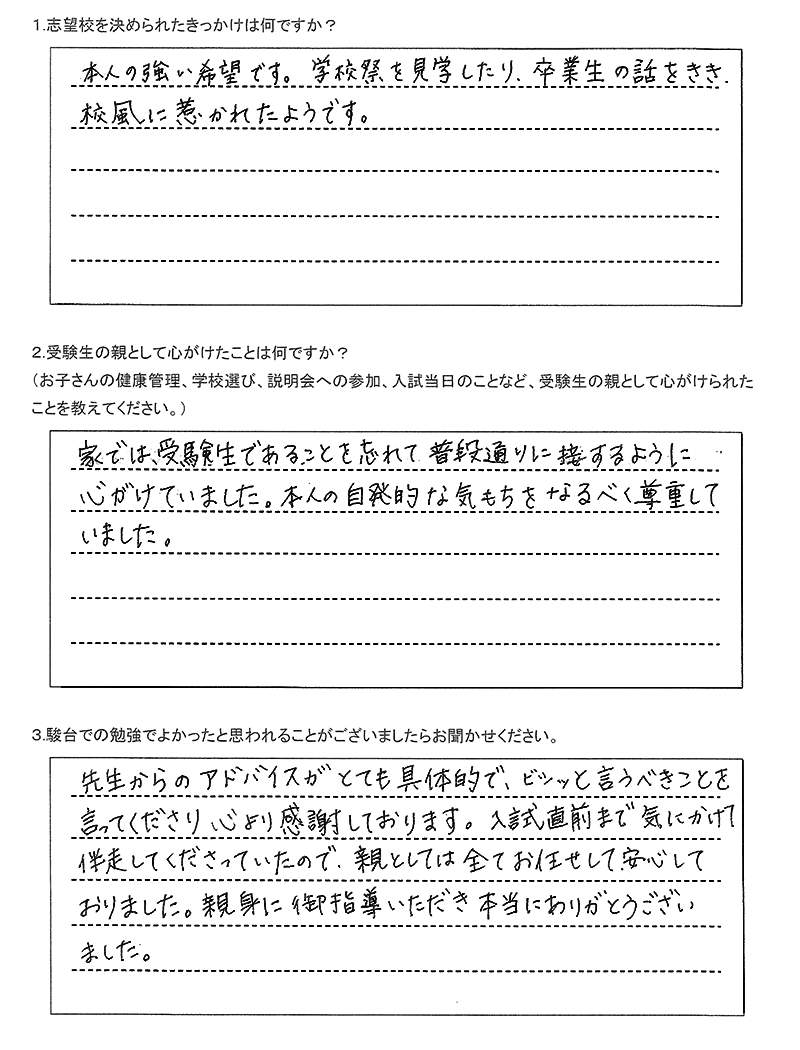 1.志望校を決められたきっかけは何ですか？
本人の強い希望です。学校祭を見学したり、卒業生の話をきき、
校風に惹かれたようです。
2.受験生の親として心がけたことは何ですか？
（お子さんの健康管理、学校選び、説明会への参加、入試当日のことなど、受験生の親として心がけられた
ことを教えてください。）
家では、受験生であることを忘れて普段通りに接するように
心がけていました。本人の自発的な気もちをなるべく尊重して
いました。
3.駿台での勉強でよかったと思われることがございましたらお聞かせください。
先生からのアドバイスがとても具体的で、ビシッと言うべきことを
言ってくださり心より感謝しております。入試直前まで気にかけて
伴走してくださっていたので、親としては全てお任せして安心して
おりました。親身に御指導いただき本当にありがとうござい
ました。